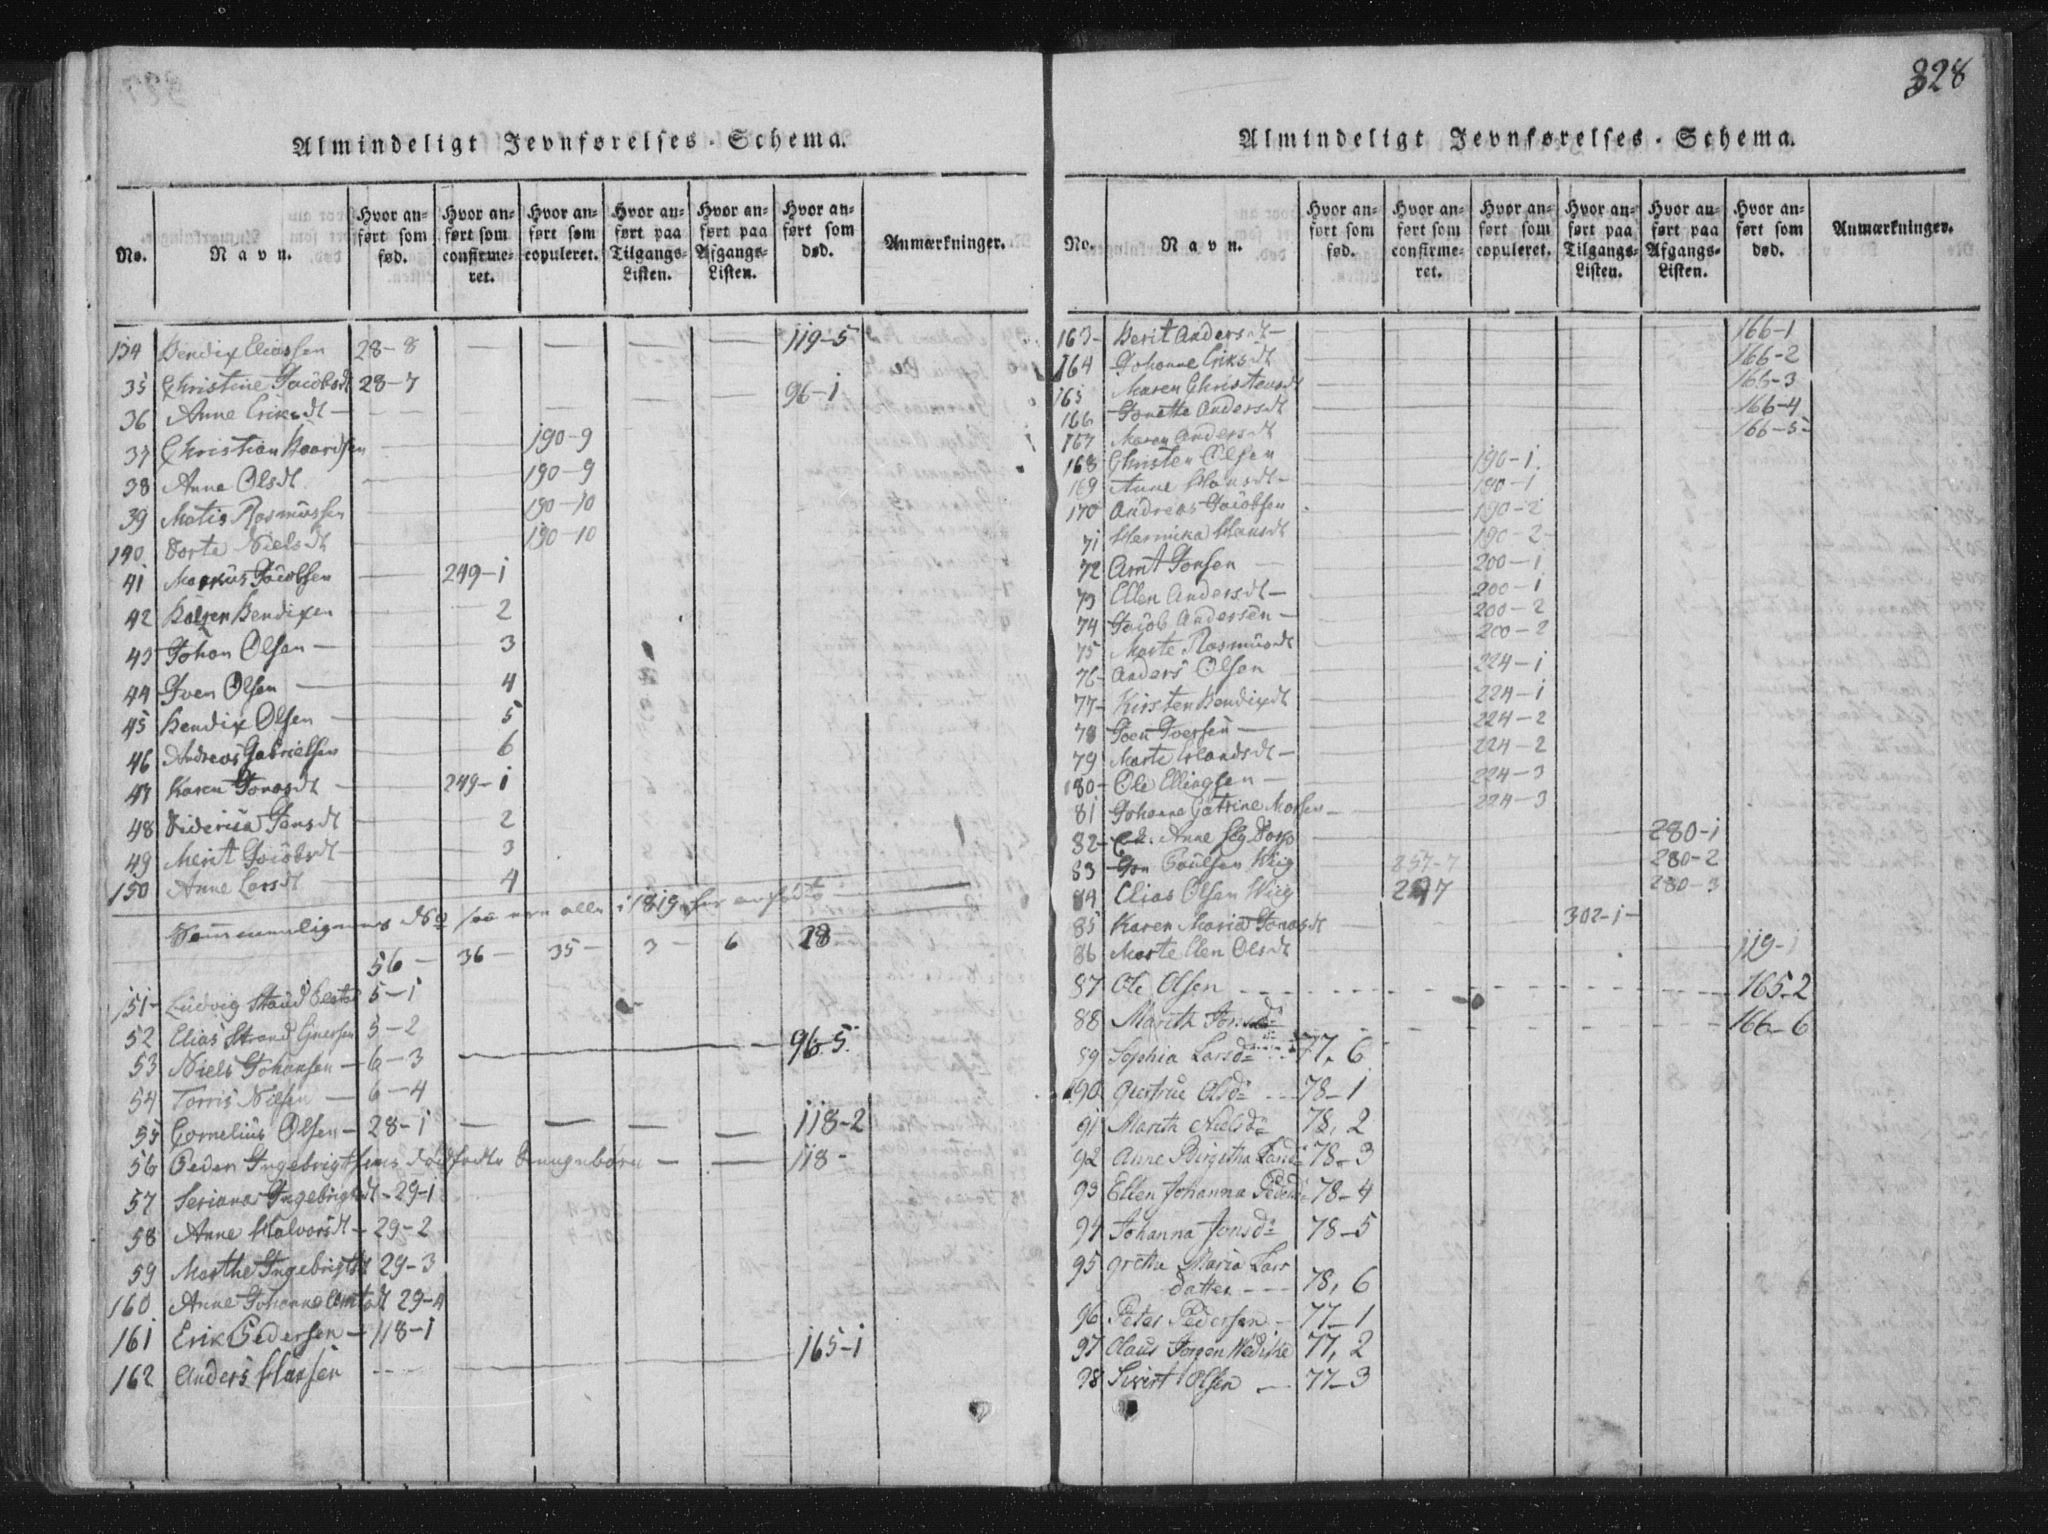 328
Almindeligt Jevnførelses-Schema.
No. Navn. Hvor anført som fød. Hvor anført som confirmeret. Hvor anført som copuleret. Hvor anført paa Tilgangs-Listen. Hvor anført paa Afgangs-Listen. Hvor anført som død. Anmærkninger.
134 Bendix Eliassen 28-8 119-5
35 Christine Jacobsdt 28-7 96-1
36 Anne Eriksdt
37 Christian 190-9
38 Anne Olsdt 190-9
39 Matis Rasmussen 190-10
140 Dorte Nielsdt 190-10
41 Markus Jacobsen 249-1
42 Bendixen 2
43 Johan Olsen 3
44 Iven Olsen 4
45 Bendix Olsen 5
46 Andreas Gabrielsen 6
47 Karen Jonasdt 249-1
48 Jensdt 2
49 Merit Jacobsdt 3
150 Anne Larsdt 4
alle i 1819
56 36 35 3 6 28
151 Ludvig 5-1
52 Elias Strand 5-2
53 Niels Johansen 6-3 96-5
54 Torris Nilsen 6-4
55 Cornelius Olsen 28-1 118-2
56 Peder Ingebrigtsens dødfødte 118-
57 Ingebrigtsdt 29-1
58 Anne Halvorsdt 29-2
59 Marthe Ingebrigtsdt 29-3
160 Anne Johanna 29-4
161 Erik Pedersen 118-1
162 Anders Hansen 165-1
Almindeligt Jevnførelses-Schema.
No. Navn. Hvor anført som fød. Hvor anført som confirmeret. Hvor anført som copuleret. Hvor anført paa Tilgangs-Listen. Hvor anført paa Afgangs-Listen. Hvor anført som død. Anmærkninger.
163 Berit Andersdt 166-1
164 Johanne Eriksdt 166-2
165 Maren Christensdt 166-3
166 Jonette Andersdt 166-4
167 Maren Andersdt 166-5
168 Christen Olsen 190-1
169 Anne Hansdt 190-1
170 Andreas Jacobsen 190-2
71 Hansdt 190-2
72 Arnt Jonsen 200-1
73 Ellen Andersdt 200-1
74 Jacob Andersen 200-2
75 Marte Rasmusdt 200-2
76 Anders Olsen 224-1
77 Kirsten Bendixdt 224-1
78 Iversen 224-2
79 Marte 224-2
180 Ole Ellingsen 224-3
81 Johanna Catrine 224-3
82 Anne 280-1
83 Wiig 257-7 280-2
84 Elias Olsen Wiig 257 280-3
85 Karen Maria Jonasdt 302-1
86 Marte Elen Olsdt 119-1
87 Ole Olsen 165-2
88 Marith 166-6
89 Sophia Larsd 77. 6
190 Gjertrue Olsd 78-1
91 Marith Nielsd 78, 2
92 Anne Birgitha 78-3
93 Ellen Johanna 78-4
94 Johanna Jonsd 78-5
95 Grethe Maria Lars
datter 78, 6
96 Peter Pedersen 77-1
97 Claus Jørgen 77, 2
98 Sivert Olsen 77-3